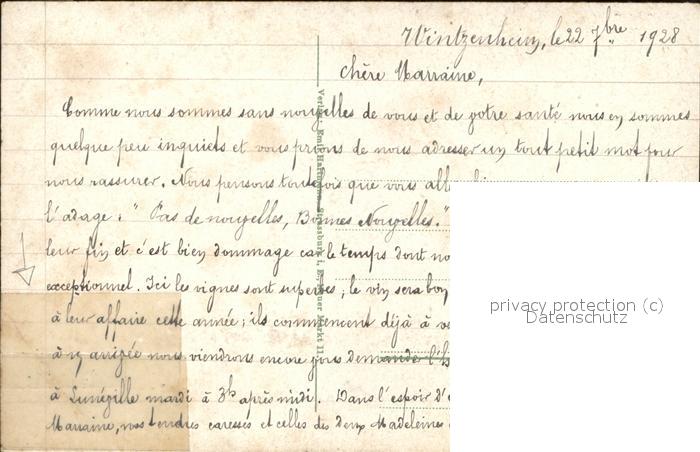 Wintzenheim, le 22 7bre 1928
Chère Marraine,
Comme nous sommes sans nouvelles de vous et de votre santé nous en sommes
quelque peu inquiets et vous prions de nous adresser un tout petit mot pour
nous rassurer. Nous pensons toutefois que vous
l'adage : " Pas de nouvelles, Bonnes Nouvelles. "
leur fin et c'est bien dommage car le temps dont
exceptionnel. Ici les vignes sont superbes ; le vin sera bon
à leur affaire cette année ; ils commencent déjà à
arrivée nous viendrons encore vous
à Lunéville mardi à 3h après midi. Dans l'espoir
Marraine, nos tendres caresses et celles des deux Madeleines
Verlag: Emil Hartmann, Strassburg i. E., Neuer Markt 11.
privacy protection (c)
Datenschutz